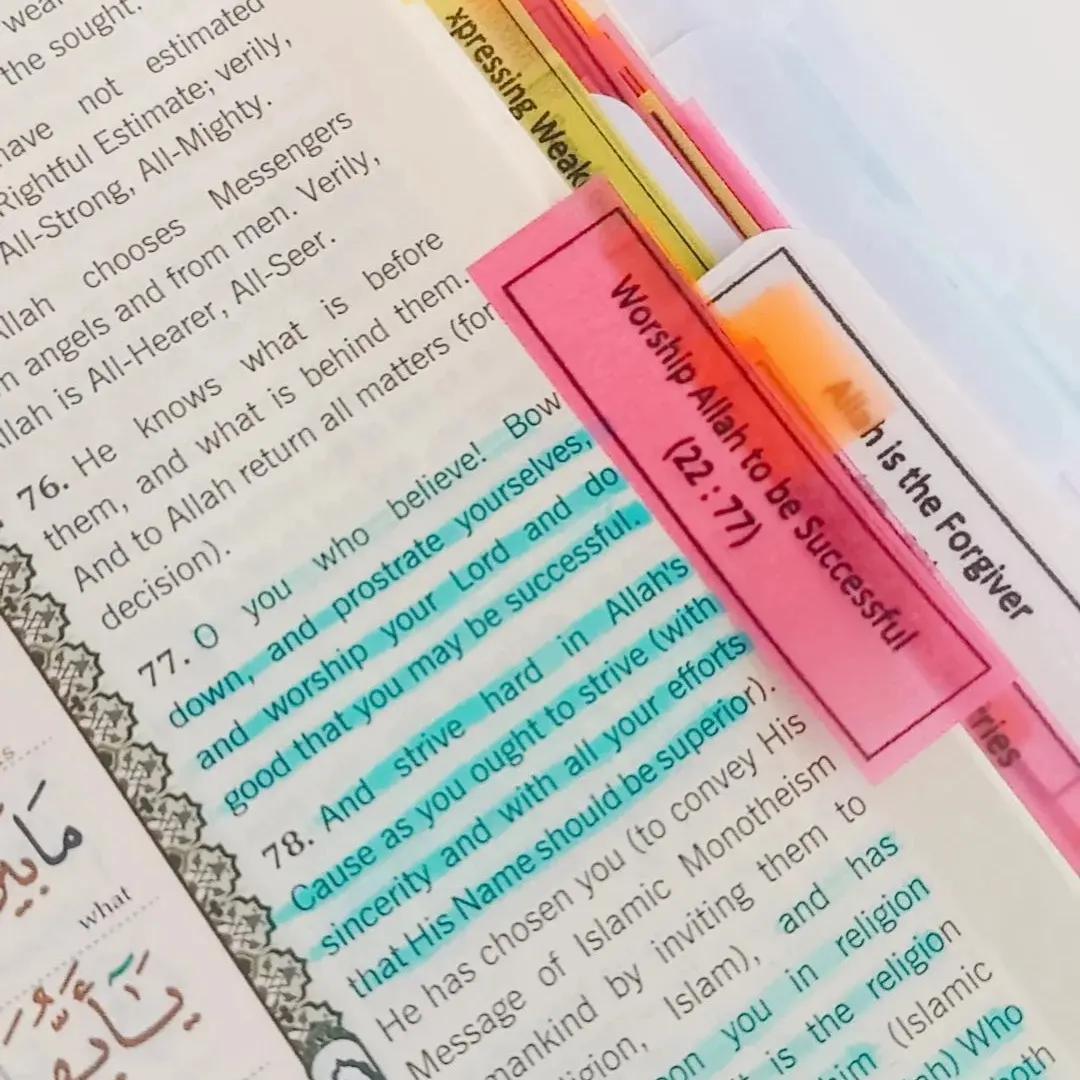 the sought.
have not estimated
Rightful Estimate; verily,
All-Strong, All-Mighty.
Allah chooses Messengers
angels and from men. Verily,
Allah is All-Hearer, All-Seer.
76. He knows what is before
them, and what is behind them.
And to Allah return all matters (for
decision).
77. O you who believe! Bow
down, and prostrate yourselves,
and worship your Lord and do
good that you may be successful.
78. And strive hard in Allah's
Cause as you ought to strive (with
sincerity and with all your efforts
that His Name should be superior).
He has chosen you (to convey His
Message of Islamic Monotheism
mankind by inviting them to
Islam), and has
you in religion
is the religion
him (Islamic
Who
xpressing Weak
Worship Allah to be Successful
(22 : 77)
Allah is the Forgiver
what